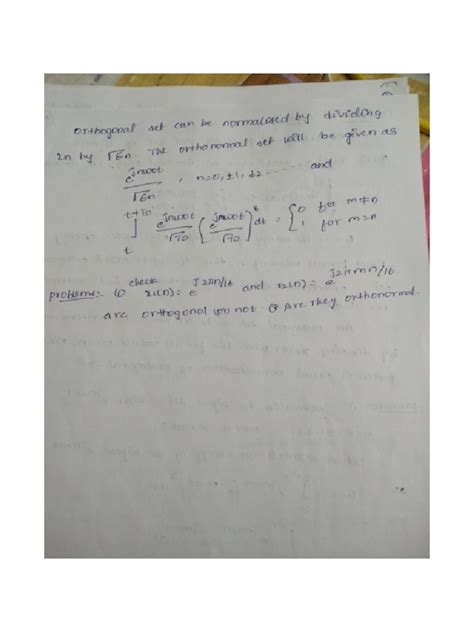 orthogonal set can be normalised by dividing
xn by √En. The orthonormal set will be given as
e^jnω0t / √En , n=0, ±1, ±2 ------- and
t+T0
∫ e^jnω0t / √T0 ( e^jmω0t / √T0 )* dt = { 0 for m≠n
1 for m=n
t
problems:- ① check
x1(n)= e^j2πn/16 and x2(n)= e^j2πmn/16
are orthogonal (or) not ② Are they orthonormal.